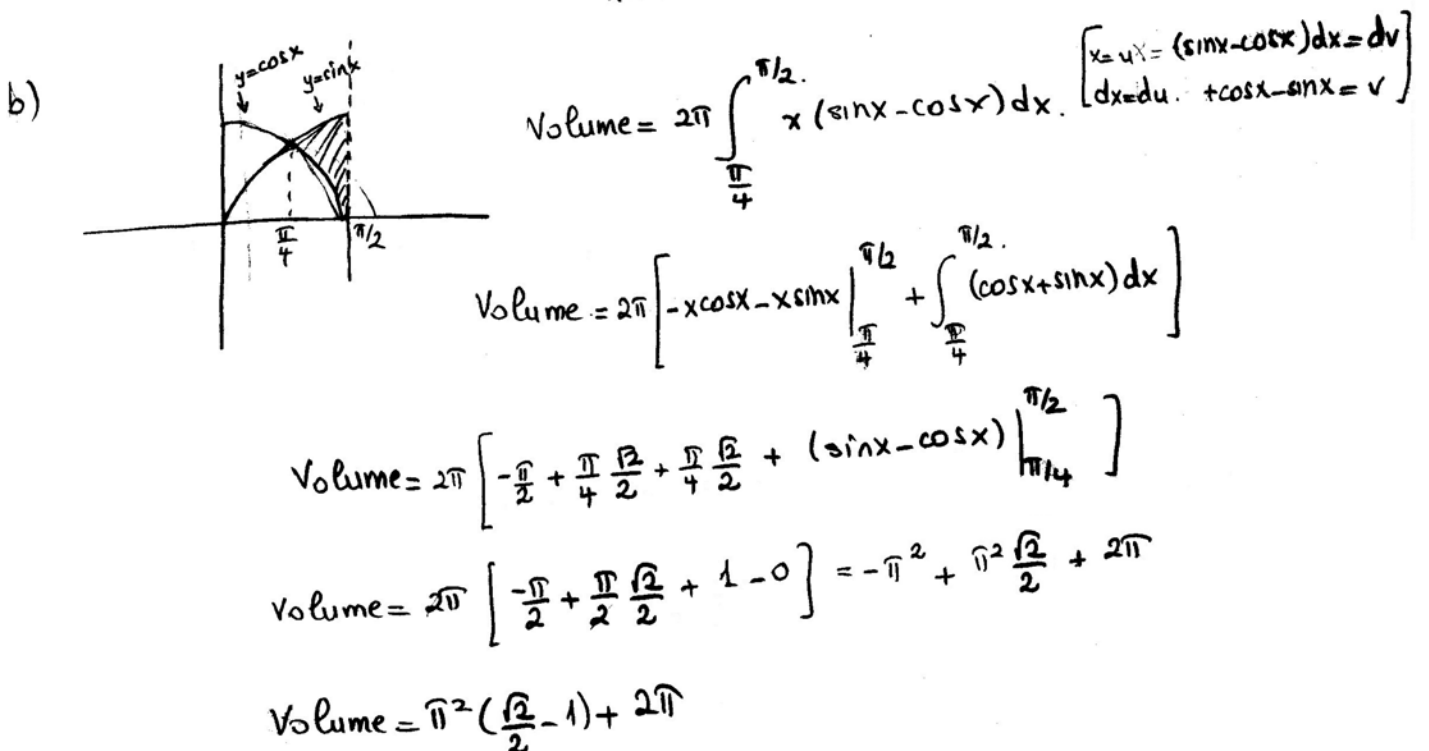 b)
y=cosx
y=sinx
π/4
π/2
Volume = 2π ∫_{π/4}^{π/2} x (sinx - cosx) dx. [x=u (sinx-cosx)dx=dv
dx=du. +cosx-sinx=v]
Volume = 2π [-xcosx - xsinx |_{π/4}^{π/2} + ∫_{π/4}^{π/2} (cosx+sinx) dx]
Volume = 2π [-π/2 + π/4 √2/2 + π/4 √2/2 + (sinx - cosx) |_{π/4}^{π/2}]
Volume = 2π [-π/2 + π/2 √2/2 + 1 - 0] = -π² + π² √2/2 + 2π
Volume = π² (√2/2 - 1) + 2π